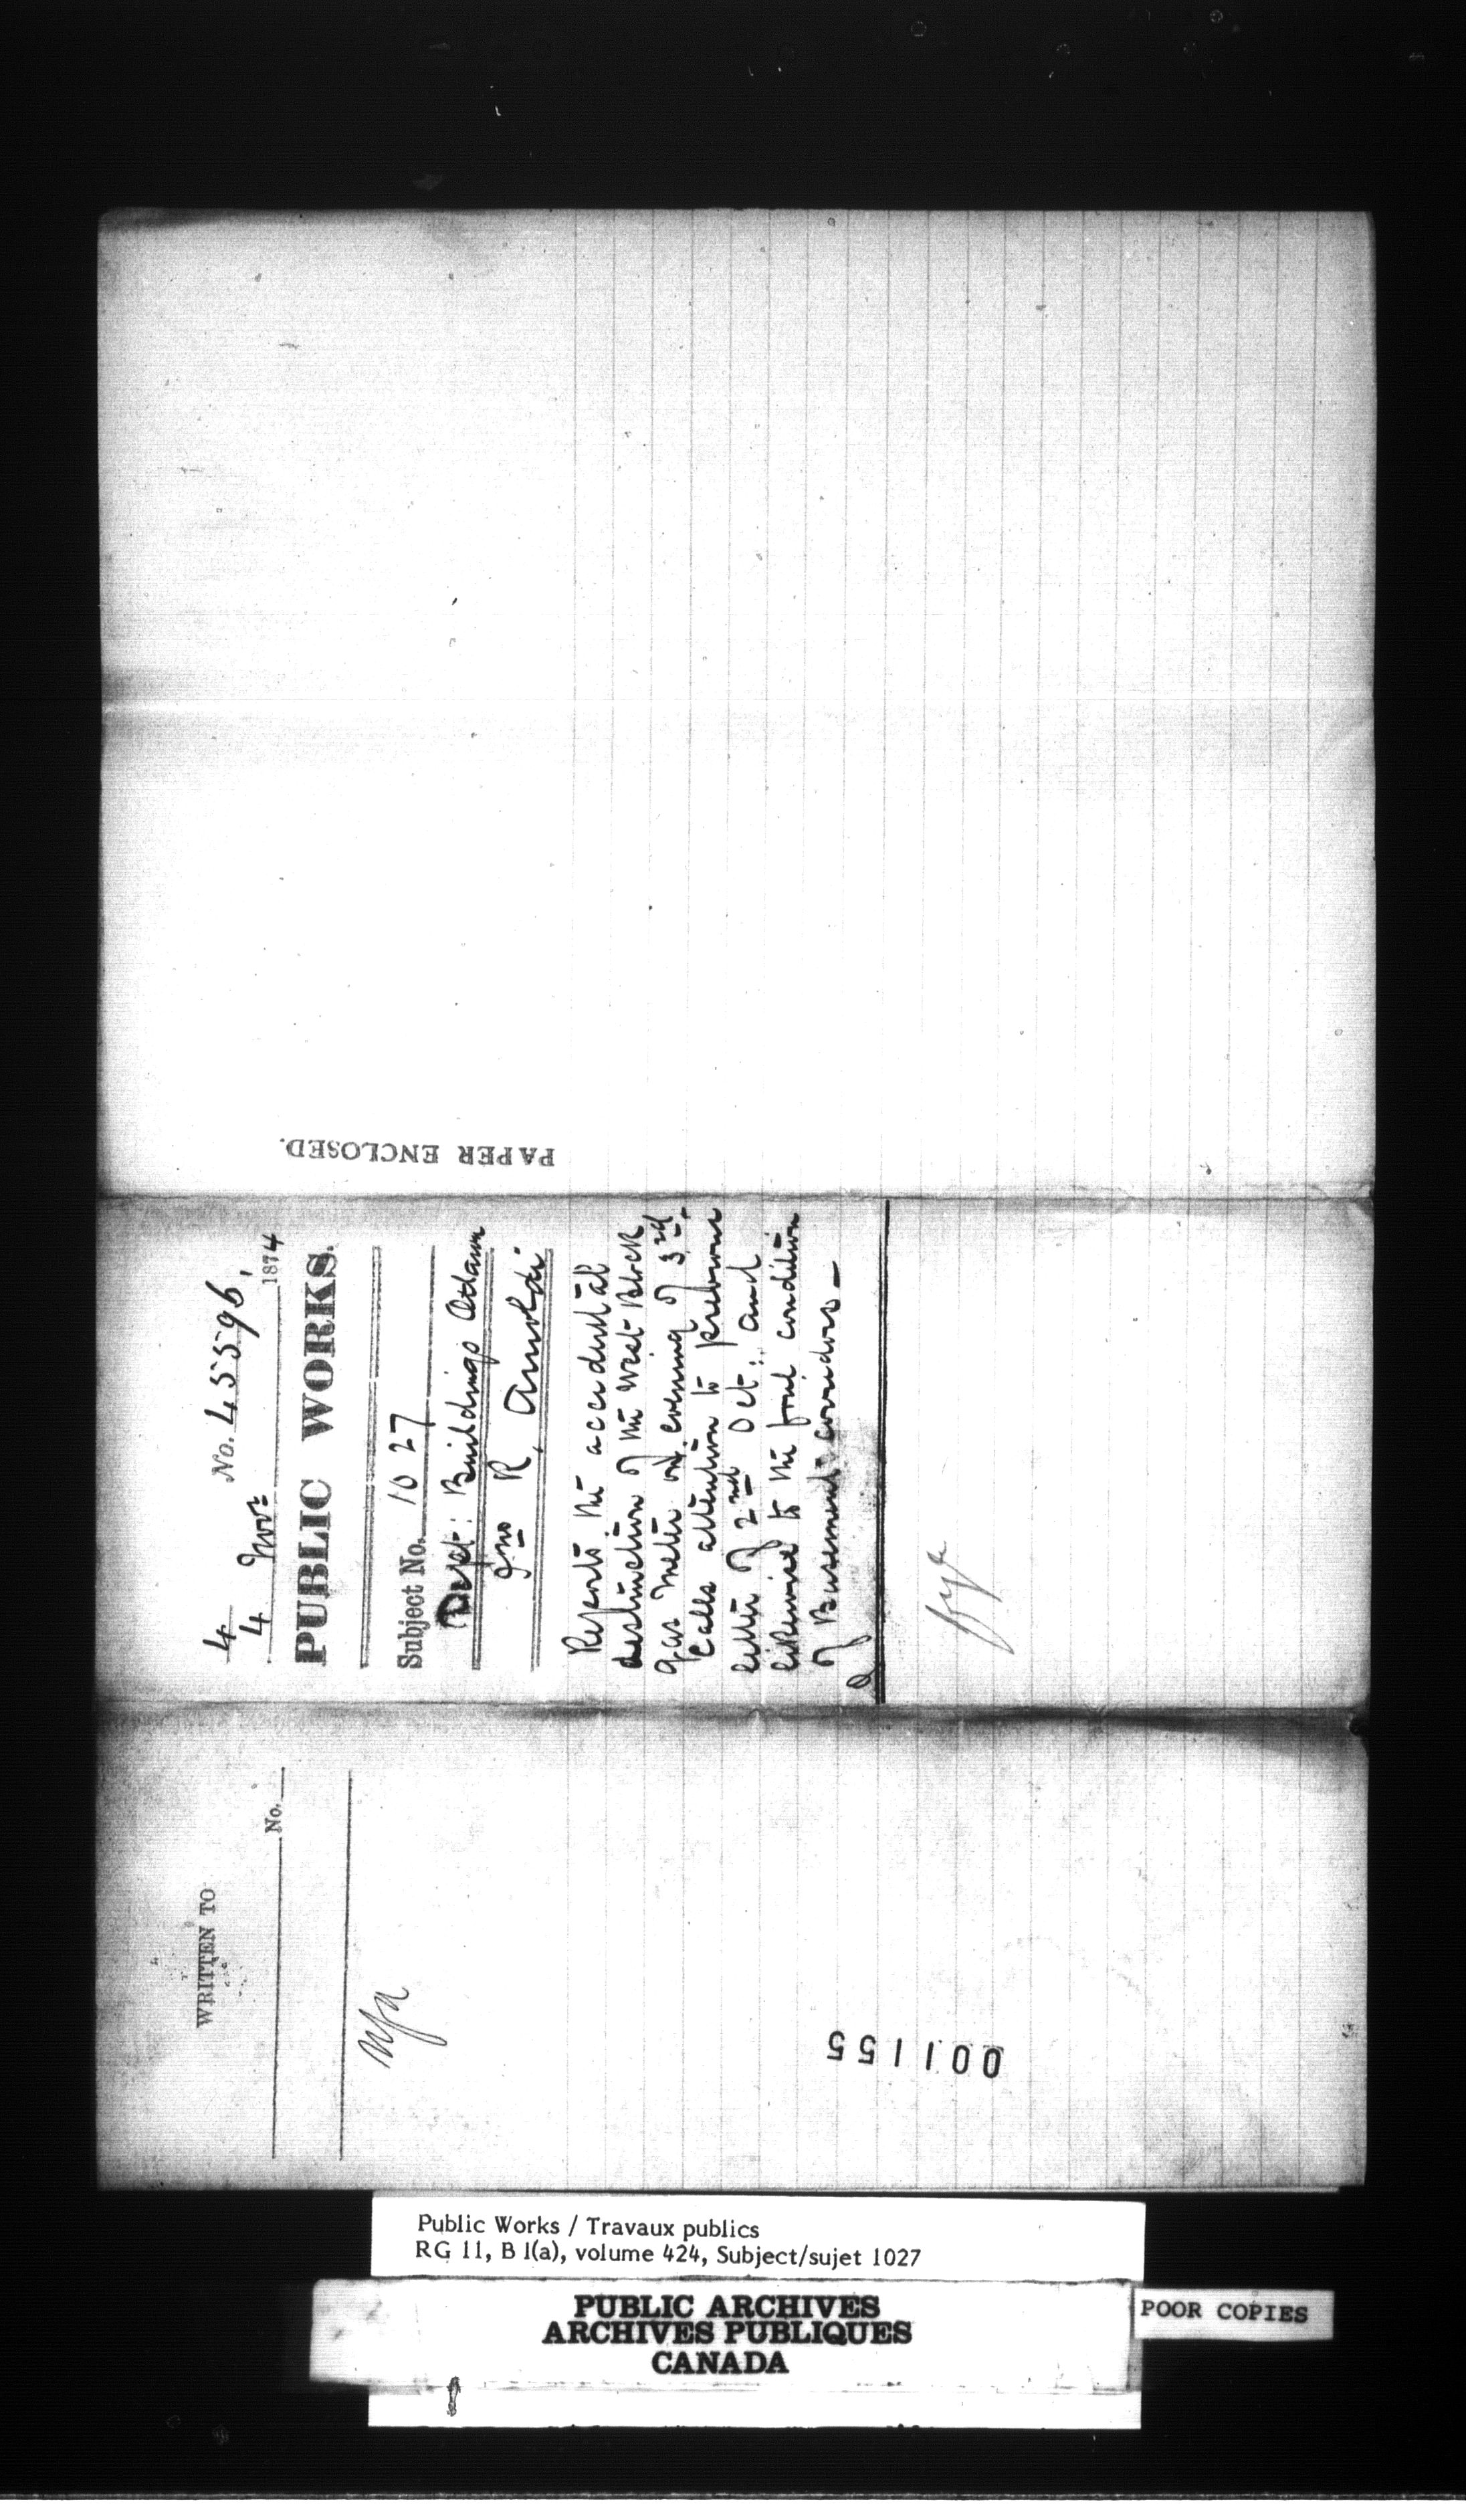 PAPER ENCLOSED.
4 No. 45596,
4 Novr 1874
PUBLIC WORKS.
Subject No. 1027
Dept: Buildings Ottawa
Jno R. Arnoldi
Reports the accidental
destruction of the West Block
gas meter on evening of 3rd.
Calls attention to previous
letter of 2nd Oct: and
likewise to the foul condition
of Basement corridors—
WRITTEN TO
No.
Nfa
001155
Public Works / Travaux publics
RG 11, B 1(a), volume 424, Subject/sujet 1027
PUBLIC ARCHIVES
ARCHIVES PUBLIQUES
CANADA
POOR COPIES